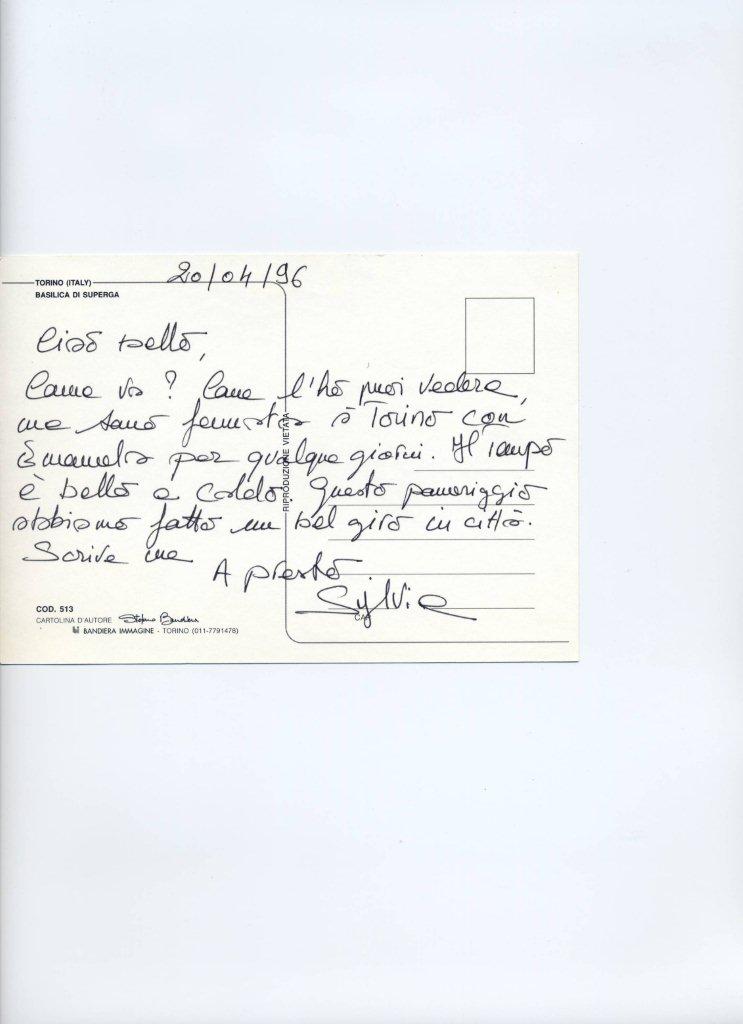 20/04/96
TORINO (ITALY)
BASILICA DI SUPERGA
Ciao bello,
Come va? Come l'ho puoi vedere,
me sono fermata a Torino con
Emanuela per qualque giorni. Il tempo
è bello e caldo. Questo pameriggio
abbiamo fatto un bel giro in città.
Scrive me
A presto
Sylvie
RIPRODUZIONE VIETATA
COD. 513
CARTOLINA D'AUTORE Stefano Bandiera
BANDIERA IMMAGINE - TORINO (011-7791478)